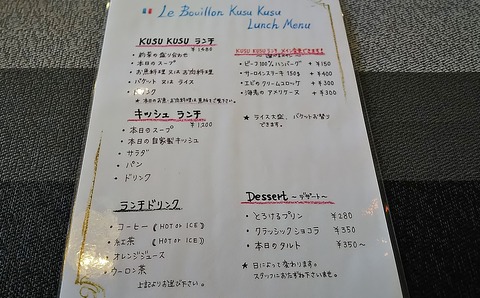 Le Bouillon Kusu Kusu
Lunch Menu
KUSU KUSU ランチ
¥1480
・前菜の盛り合わせ
・本日のスープ
・お魚料理 又は お肉料理
・バケット 又は ライス
・ドリンク
★本日のお魚・お肉料理は黒板をご覧下さい。
キッシュ ランチ
¥1200
・本日のスープ
・本日の自家製キッシュ
・サラダ
・パン
・ドリンク
ランチドリンク
・コーヒー (HOT or ICE)
・紅茶 (HOT or ICE)
・オレンジジュース
・ウーロン茶
上記よりお選び下さい。
KUSU KUSU ランチ メイン変更できます!
・ビーフ100%ハンバーグ +¥150
・サーロインステーキ 150g +¥400
・エビのクリームコロッケ +¥300
・海老のアメリケーヌ +¥300
★ライス大盛、バケットお替り
できます。
Dessert ～デザート～
・とろけるプリン ¥280
・クラッシックショコラ ¥350
・本日のタルト ¥350～
★日によって変わります。
スタッフにおたずね下さいませ。